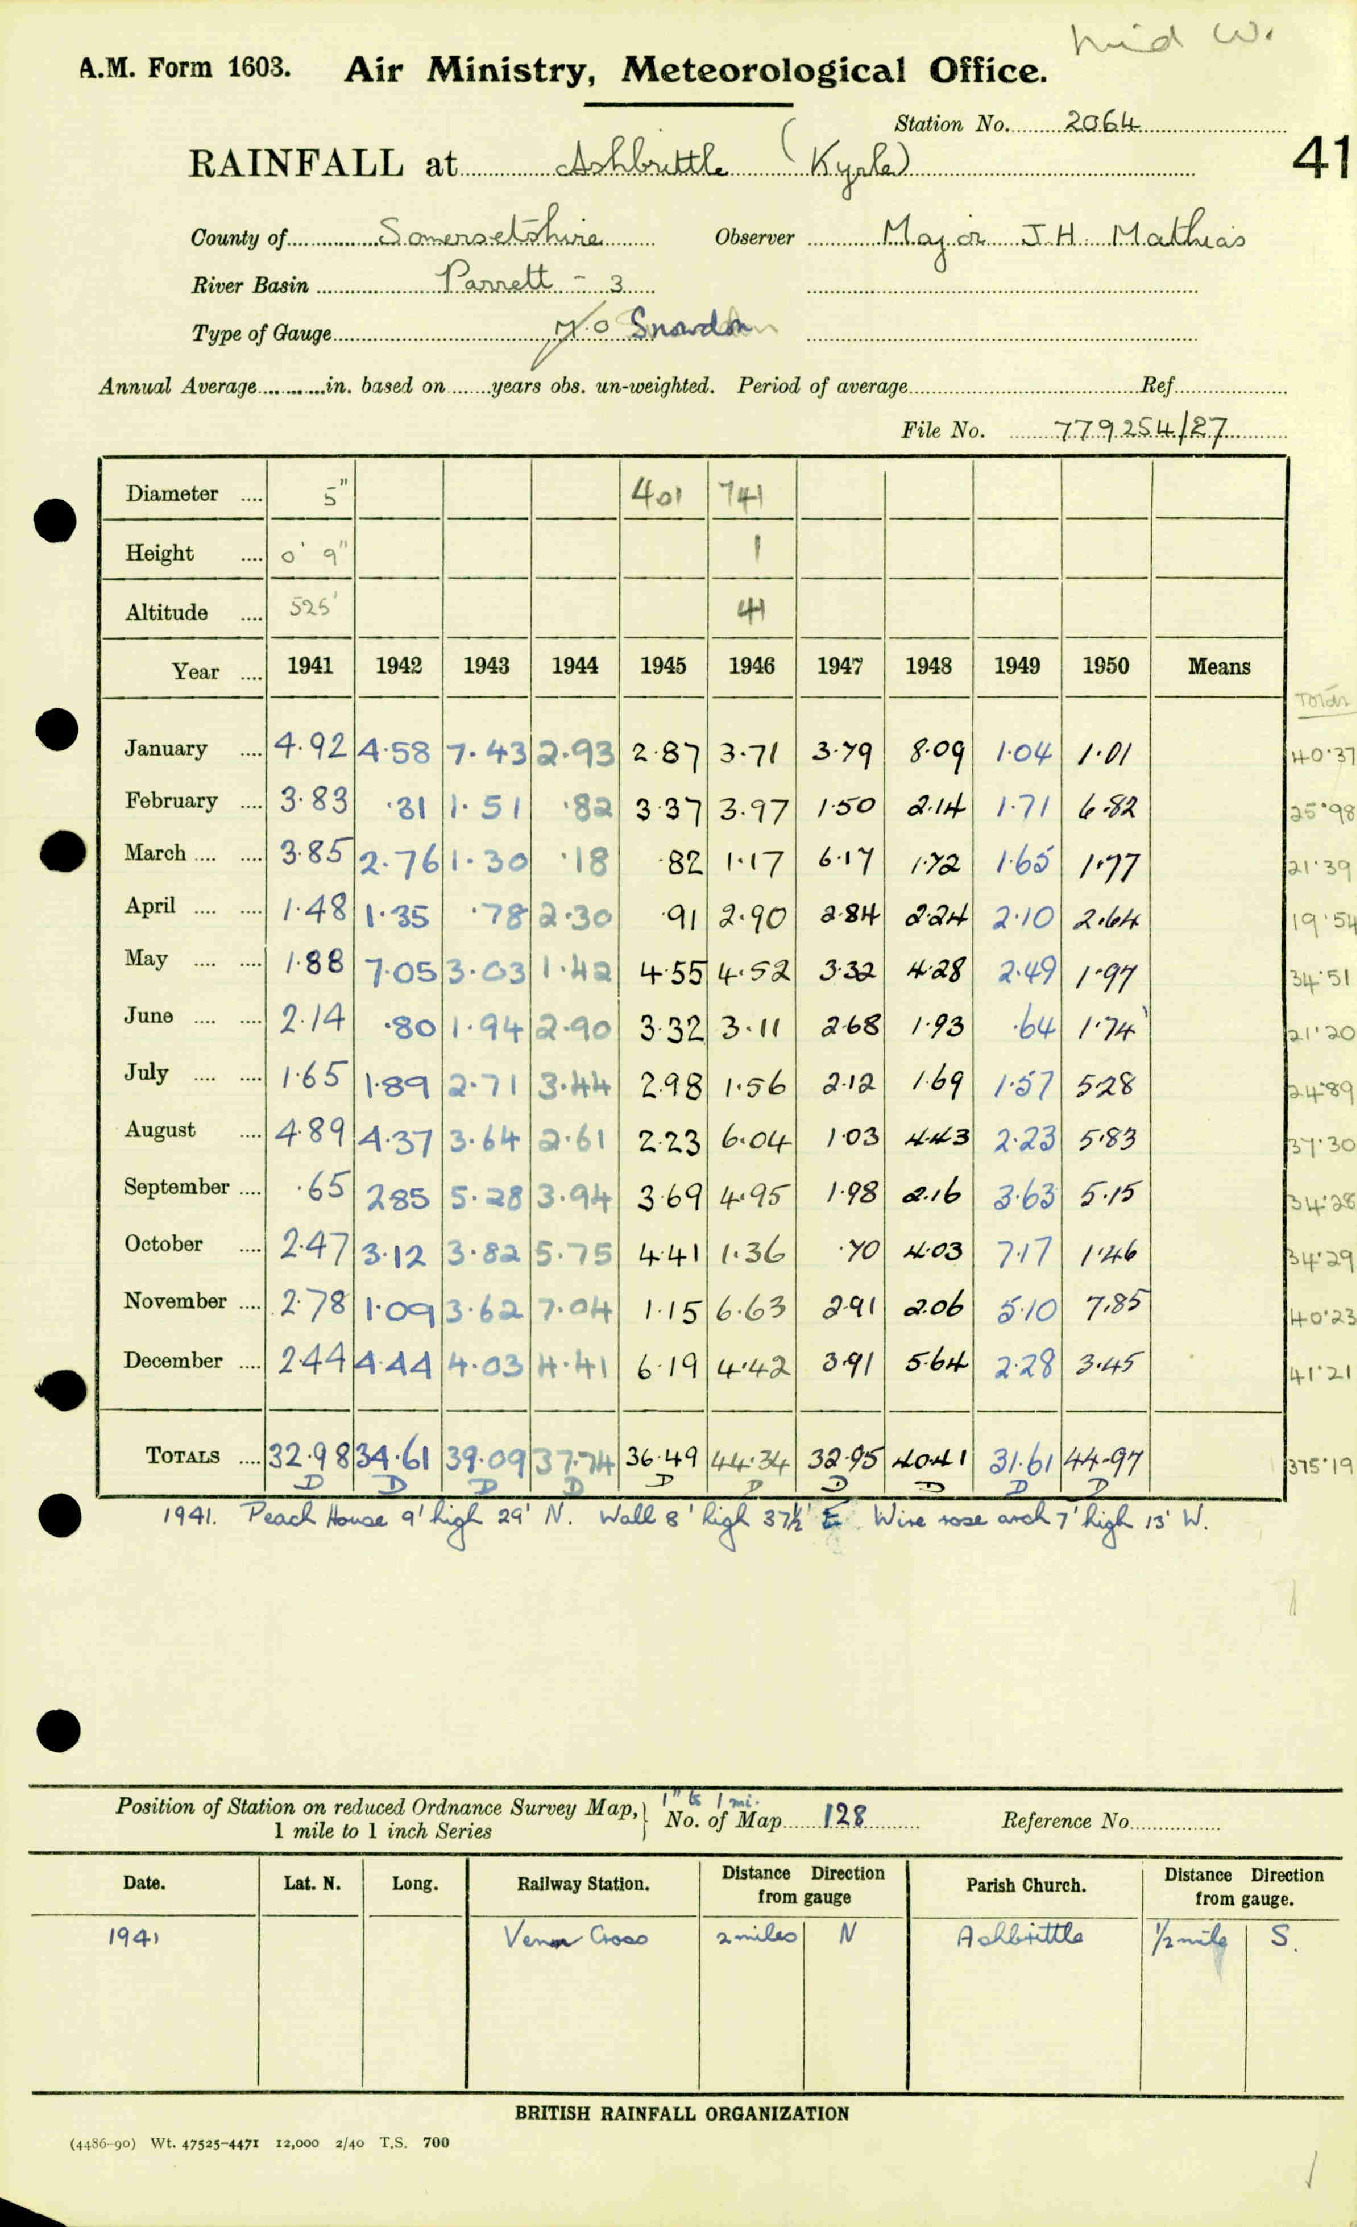 Mid W.
A.M. Form 1603. Air Ministry, Meteorological Office.
Station No. 2064
41
RAINFALL at Ashbrittle (Kyrle)
County of Somersetshire Observer Major J.H. Mathias
River Basin Parrett - 3
Type of Gauge M.O Snowdon
Annual Average in. based on years obs. un-weighted. Period of average Ref.
File No. 779254/27
Diameter 5" 401 741
Height 0' 9" 1
Altitude 525' 41
Year 1941 1942 1943 1944 1945 1946 1947 1948 1949 1950 Means
Totals
January 4.92 4.58 7.43 2.93 2.87 3.71 3.79 8.09 1.04 1.01 40.37
February 3.83 .31 1.51 .82 3.37 3.97 1.50 2.14 1.71 6.82 25.98
March 3.85 2.76 1.30 .18 .82 1.17 6.17 1.72 1.65 1.77 21.39
April 1.48 1.35 .78 2.30 .91 2.90 2.84 2.24 2.10 2.64 19.54
May 1.88 7.05 3.03 1.42 4.55 4.52 3.32 4.28 2.49 1.97 34.51
June 2.14 .80 1.94 2.90 3.32 3.11 2.68 1.93 .64 1.74 21.20
July 1.65 1.89 2.71 3.44 2.98 1.56 2.12 1.69 1.57 5.28 24.89
August 4.89 4.37 3.64 2.61 2.23 6.04 1.03 4.43 2.23 5.83 37.30
September .65 2.85 5.28 3.94 3.69 4.95 1.98 2.16 3.63 5.15 34.28
October 2.47 3.12 3.82 5.75 4.41 1.36 .70 4.03 7.17 1.46 34.29
November 2.78 1.09 3.62 7.04 1.15 6.63 2.91 2.06 5.10 7.85 40.23
December 2.44 4.44 4.03 4.41 6.19 4.42 3.91 5.64 2.28 3.45 41.21
TOTALS 32.98 34.61 39.09 37.74 36.49 44.34 32.95 40.41 31.61 44.97 375.19
D D D D D D D D D D
1941. Peach House 9' high 29' N. Wall 8' high 37½' E. Wire rose arch 7' high 13' W.
Position of Station on reduced Ordnance Survey Map, 1 mile to 1 inch Series
1" to 1 mi.
No. of Map 128 Reference No.
Date. Lat. N. Long. Railway Station. Distance Direction from gauge Parish Church. Distance Direction from gauge.
1941 Venn Cross 2 miles N Ashbrittle 1/2 mile S.
BRITISH RAINFALL ORGANIZATION
(4486-90) Wt. 47525-4471 12,000 2/40 T.S. 700